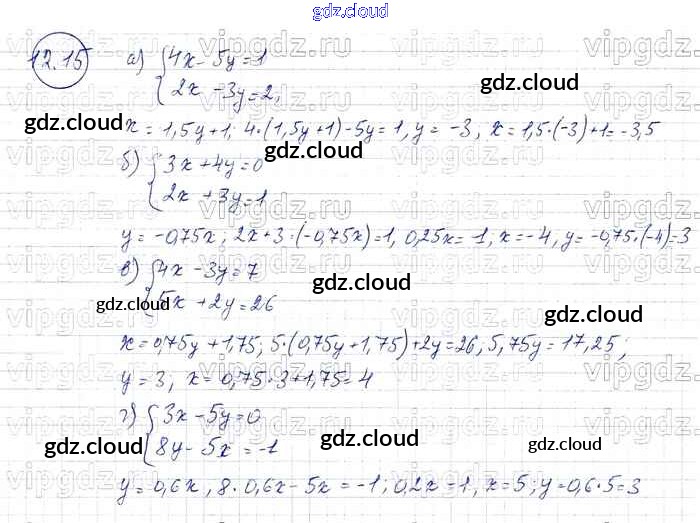 gdz.cloud
12.15 а) { 4x - 5y = 1
2x - 3y = 2,
gdz.cloud
x = 1,5y + 1; 4·(1,5y + 1) - 5y = 1, y = -3, x = 1,5·(-3) + 1 = -3,5
gdz.cloud
gdz.cloud
gdz.cloud
б) { 3x + 4y = 0
2x + 3y = 1
y = -0,75x; 2x + 3·(-0,75x) = 1, 0,25x = -1; x = -4, y = -0,75·(-4) = 3
в) { 4x - 3y = 7
5x + 2y = 26
gdz.cloud
gdz.cloud
gdz.cloud
x = 0,75y + 1,75; 5·(0,75y + 1,75) + 2y = 26, 5,75y = 17,25;
y = 3; x = 0,75·3 + 1,75 = 4
г) { 3x - 5y = 0
8y - 5x = -1
gdz.cloud
gdz.cloud
gdz.cloud
y = 0,6x, 8·0,6x - 5x = -1; 0,2x = 1, x = 5; y = 0,6·5 = 3